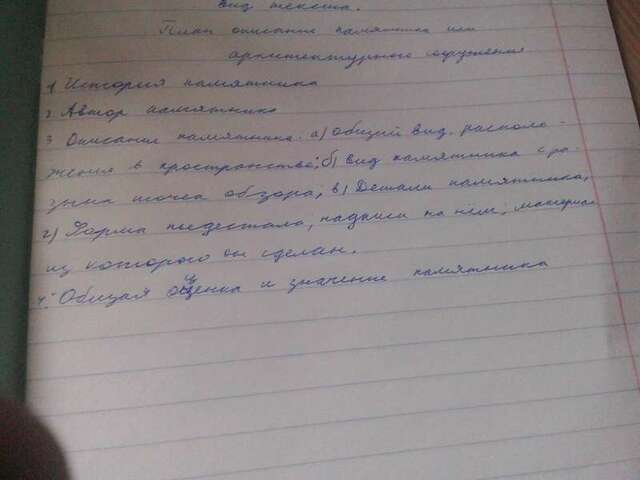 вид текста.
План описание памятника или
архитектурного сооружения
1 История памятника
2. Автор памятника
3 Описание памятника: а) общий вид, располо-
жения в пространстве; б) вид памятника с ра-
зных точек обзора; в) Детали памятника,
г) Форма пьедестала, надписи на нём, материал
из которого он сделан.
4. Общая оценка и значение памятника